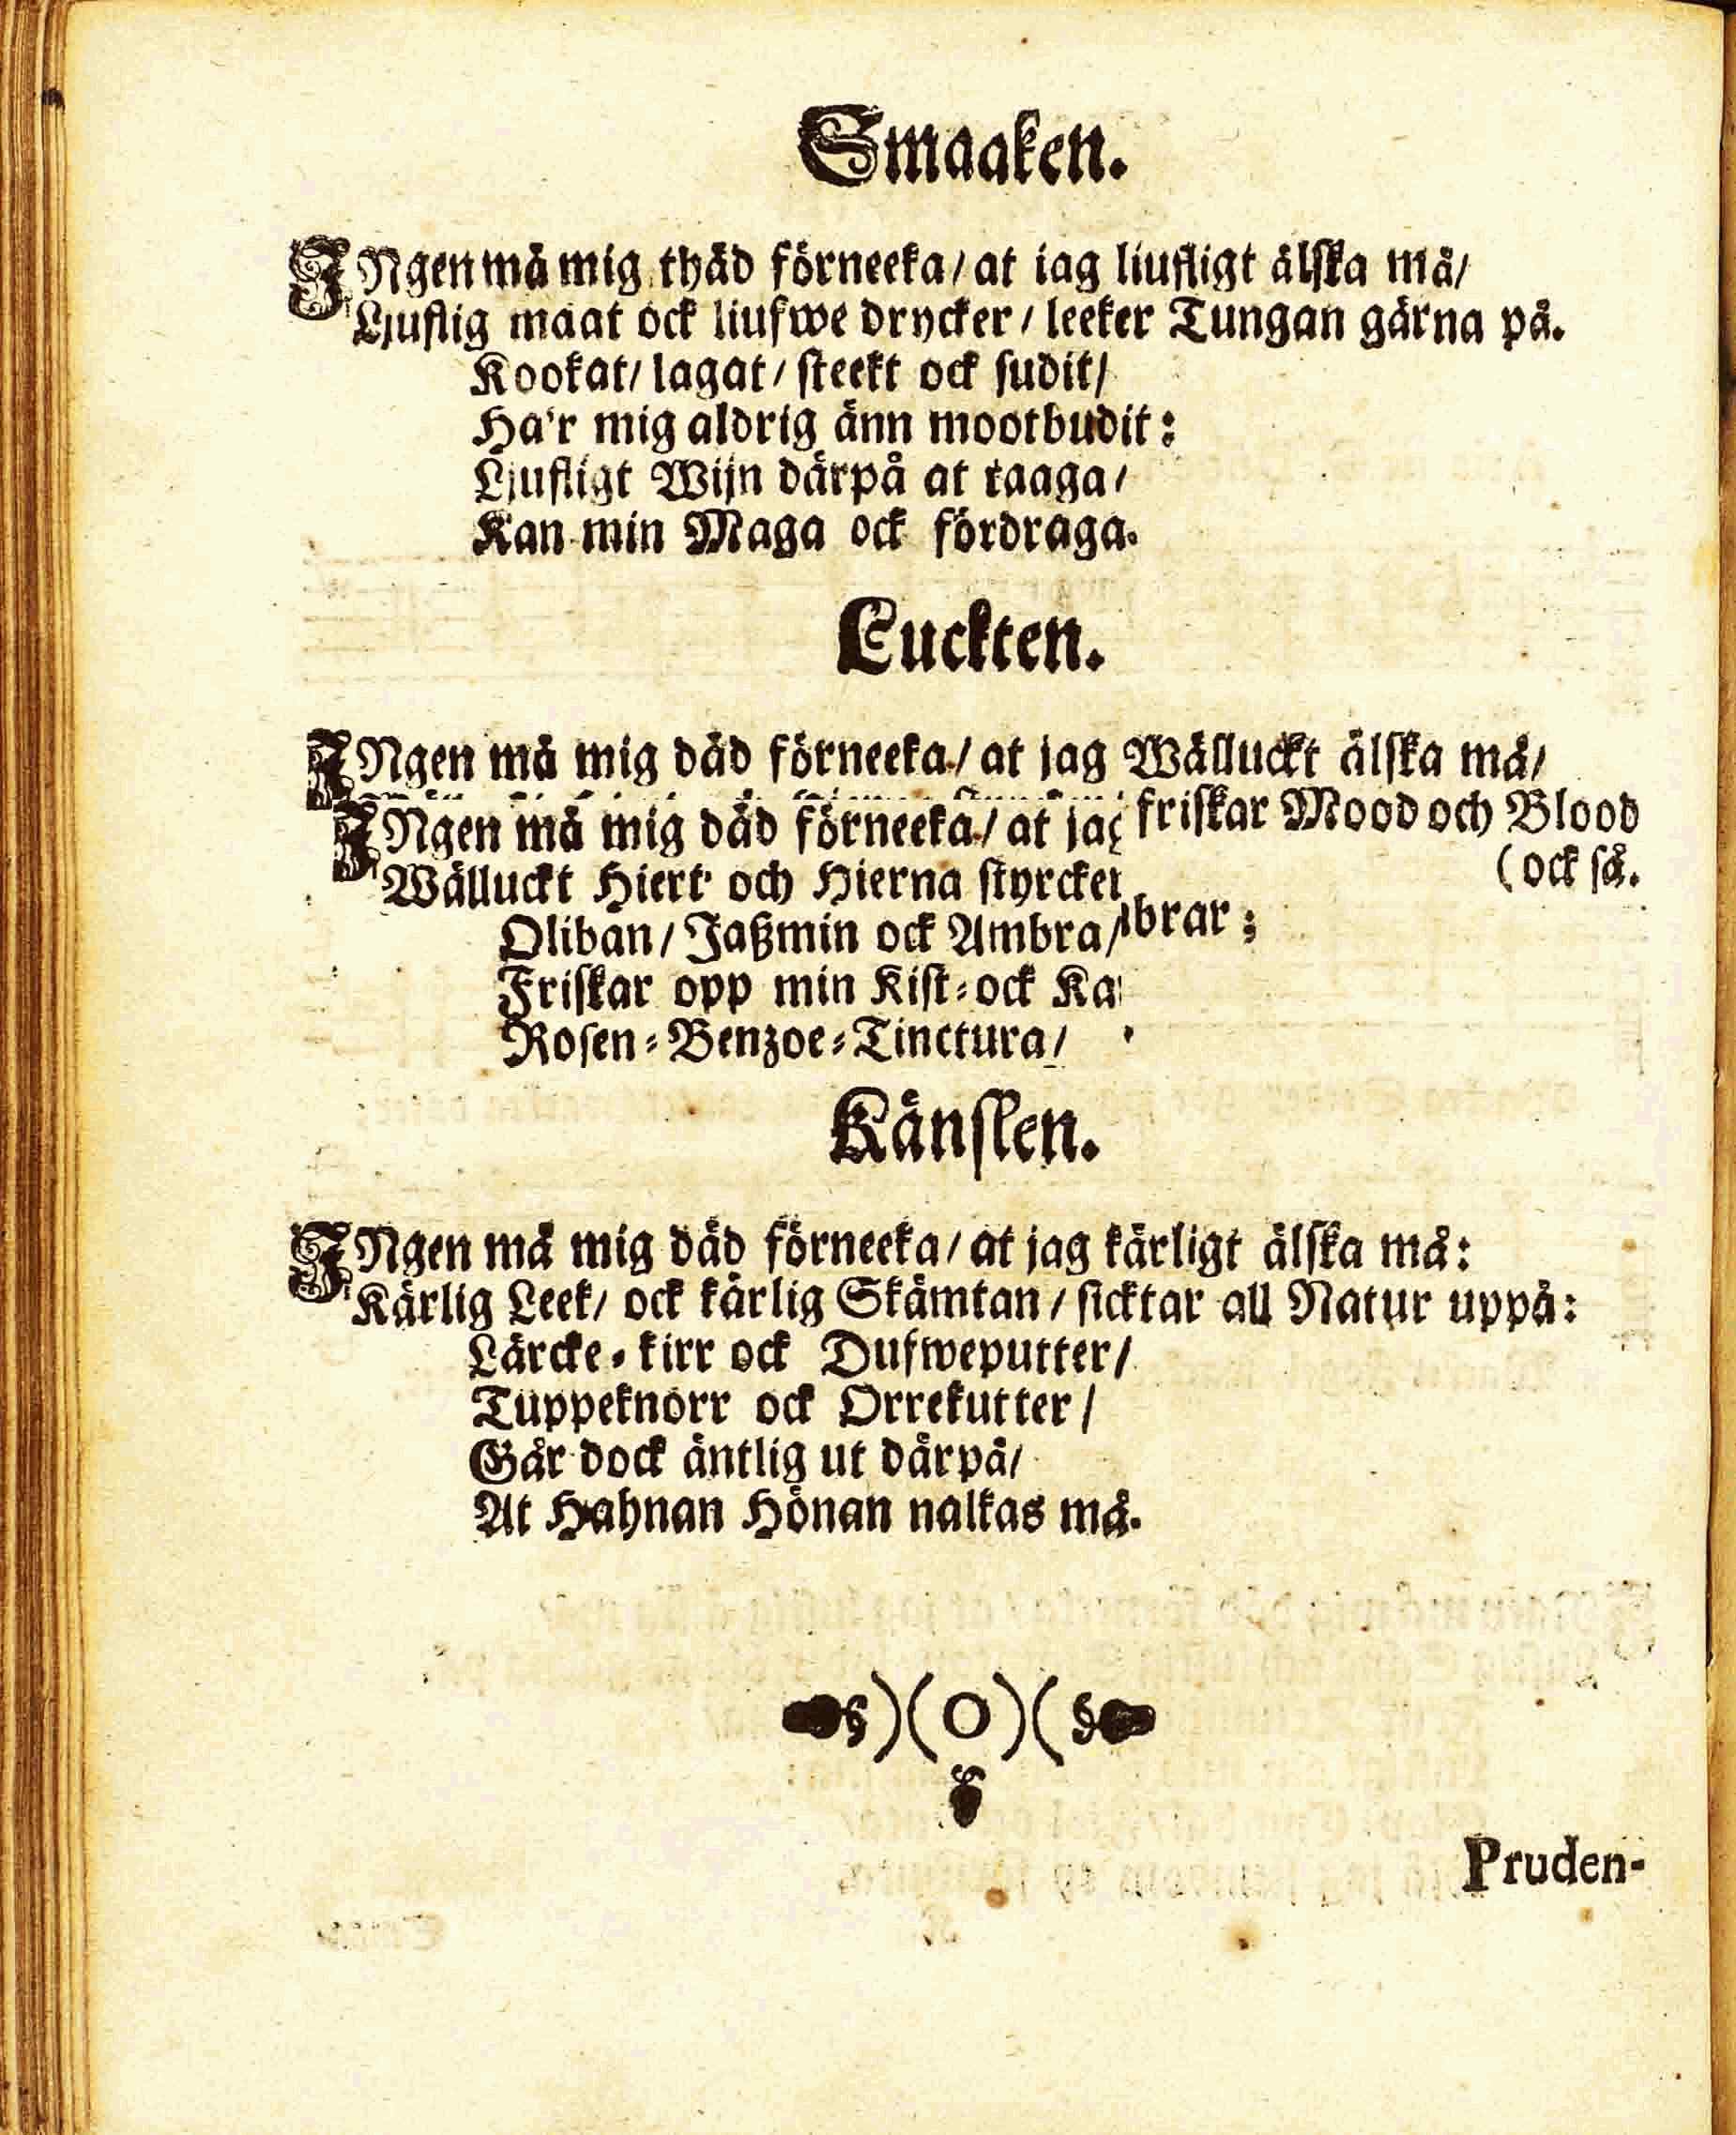 Smaaken.
INgen må mig thäd förneeka/ at iag liufligt älska må/
Ljuflig maat ock liufwe drycker/ leeker Tungan gärna på.
Kookat/ lagat/ steekt ock sudit/
Ha'r mig aldrig änn mootbudit:
Ljufligt Wijn därpå at taaga/
Kan min Maga ock fördraga.
Luckten.
INgen må mig däd förneeka/ at jag Wälluckt älska må/
INgen må mig däd förneeka/ at jag friskar Mood och Blood
(ock så.
Wälluckt Hiert och Hierna styrcker
Oliban/ Jaßmin ock Ambra/ brar;
Friskar opp min Kist-ock Ka
Rosen-Benzoe-Tinctura/
Känslen.
INgen må mig däd förneeka/ at jag kärligt älska må:
Kärlig Leek/ ock kärlig Skämtan/ sicktar all Natur uppå:
Lärcke-kirr ock Dufweputter/
Tuppeknorr ock Orrekutter/
Går dock äntlig ut därpå/
At Hahnan Hönan nalkas må.
)(O)(
Pruden-